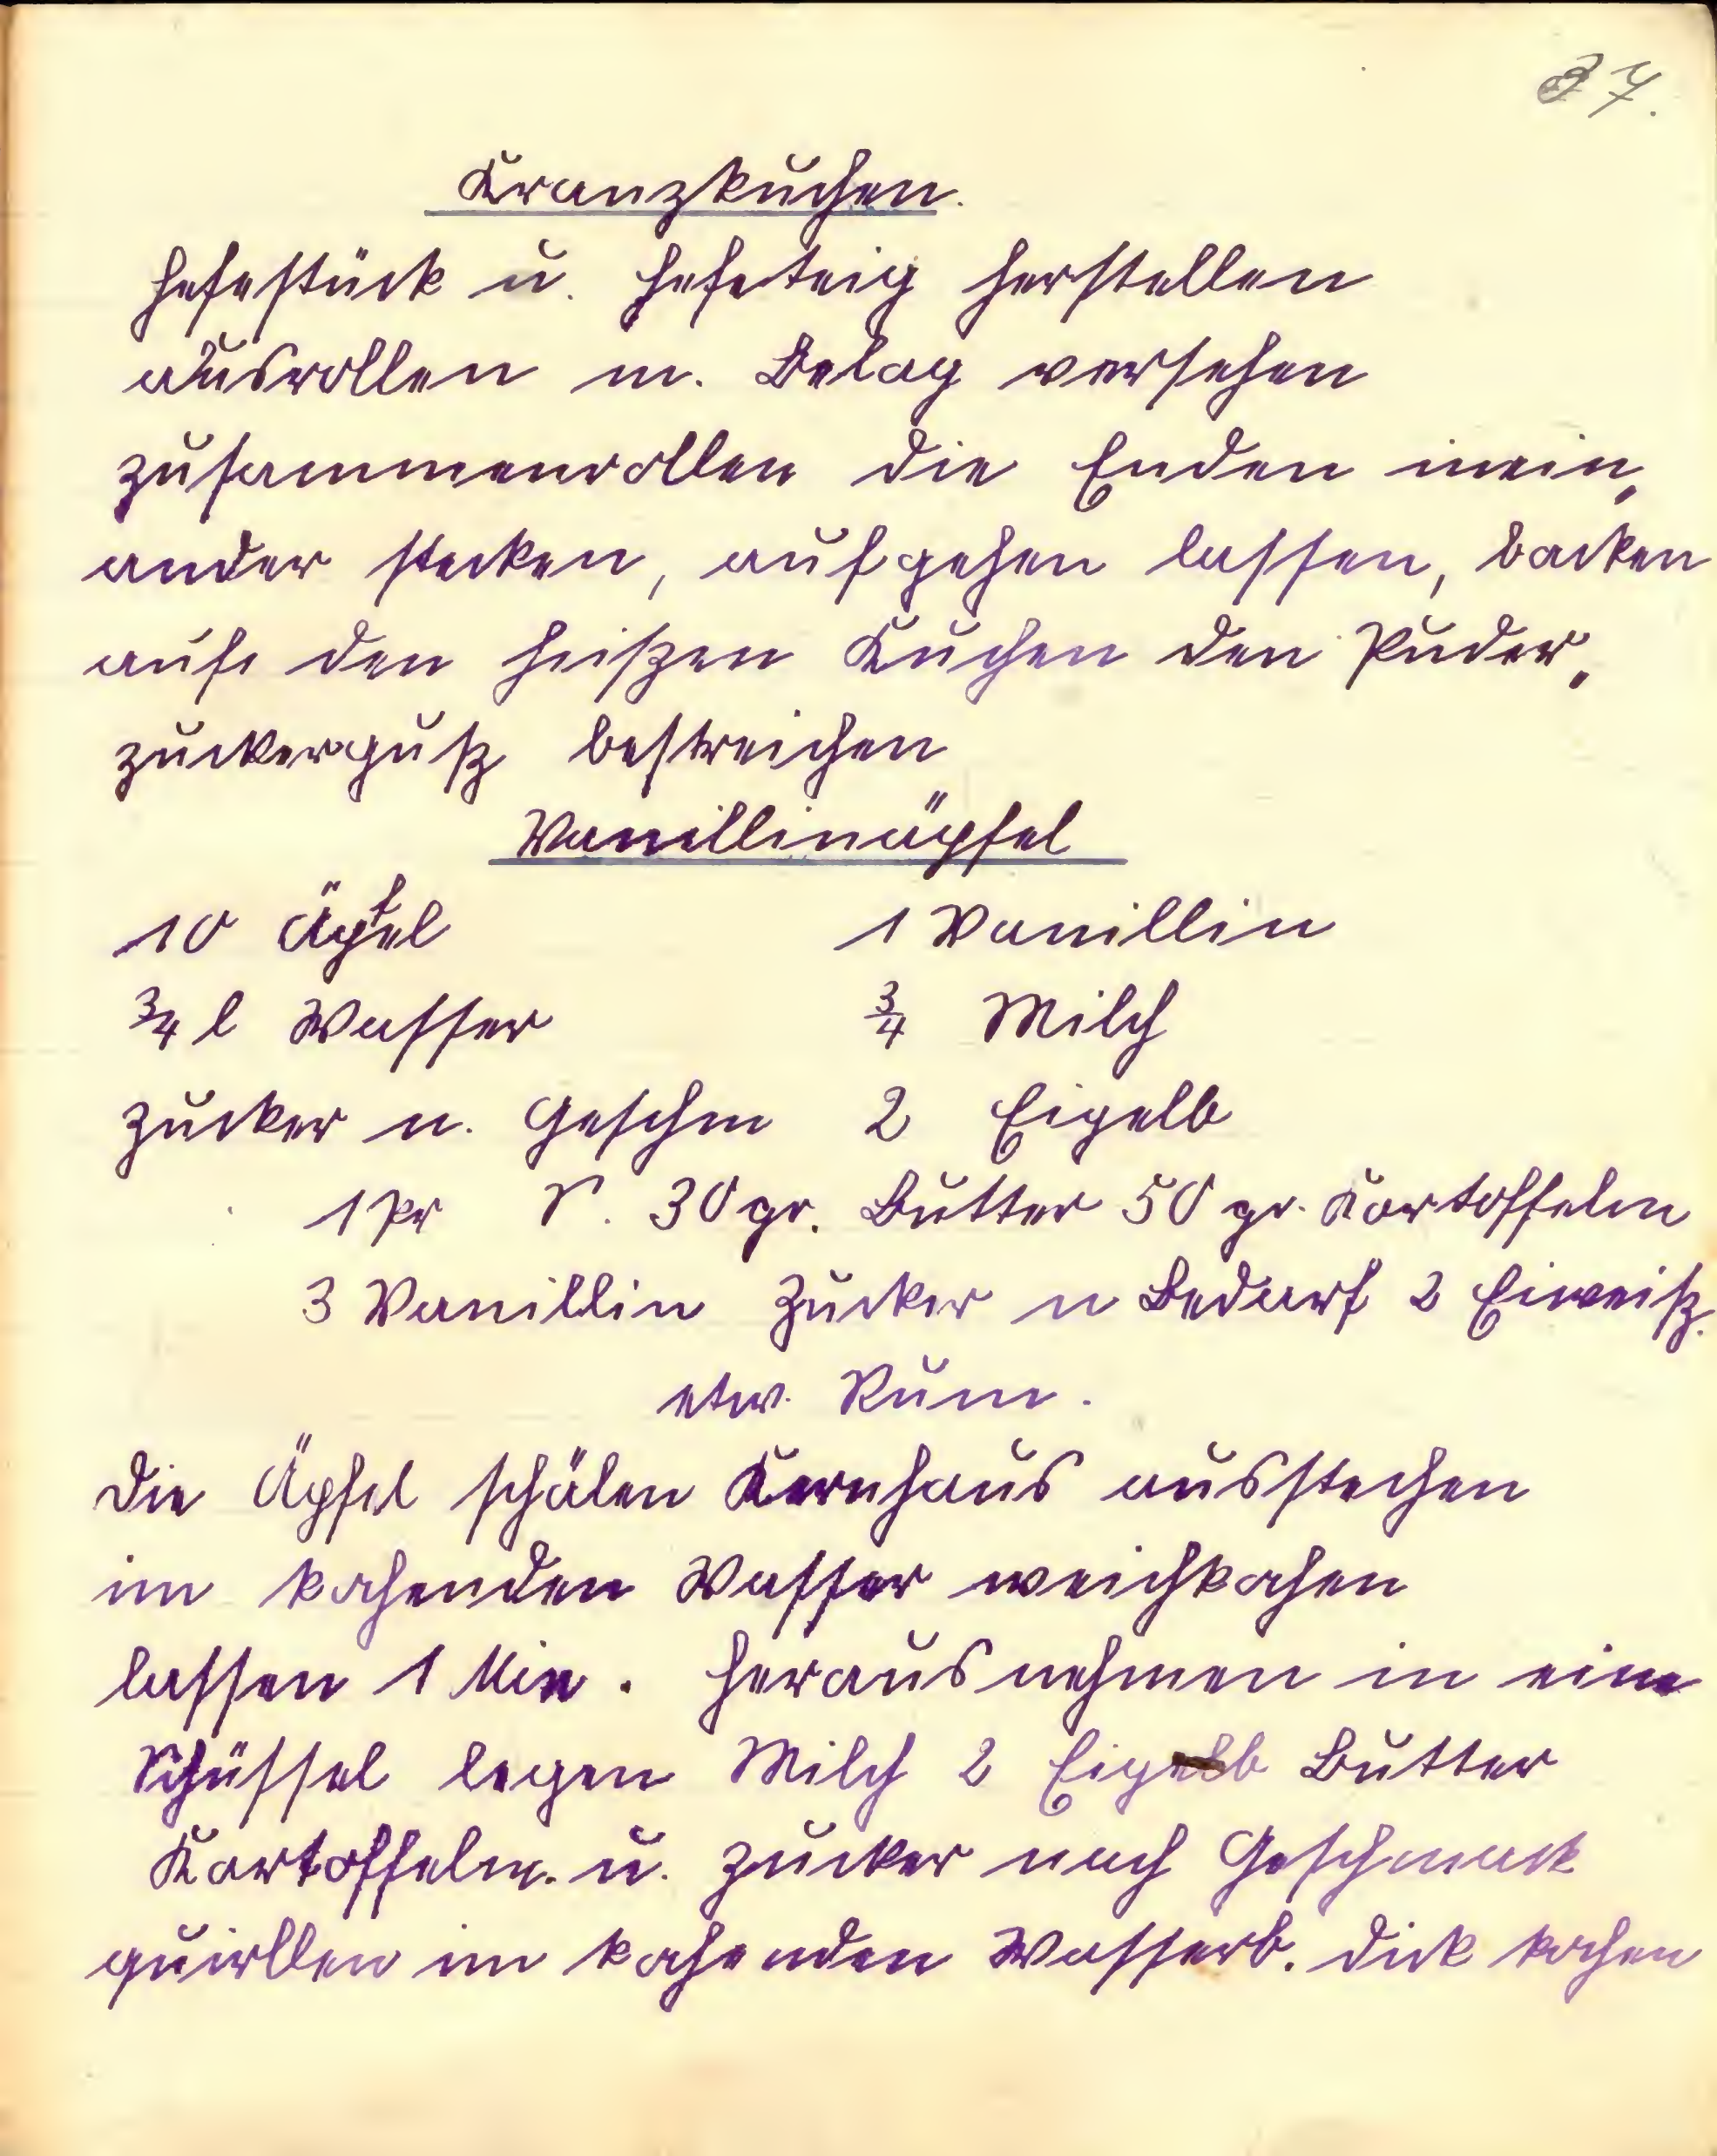 37.
Kranzkuchen.
Hefestück u. Hefeteig herstellen
ausrollen m. Belag versehen
zusammenrollen die Enden inein„
ander stecken, aufgehen lassen, backen
auf den heißen Kuchen den Puder„
zuckerguß bestreichen
Vanillinäpfel
10 Äpfel 1 Vanillin
3/4 l Wasser 3/4 Milch
Zucker n. Geschm 2 Eigelb
1 Pr S. 30 gr. Butter 50 gr. Kartoffelm
3 Vanillin Zucker n Bedarf 2 Eiweiß.
etw. Rum.
Die Äpfel schälen Kernhaus ausstechen
im kochenden Wasser weichkochen
lassen 1 Min. herausnehmen in eine
Schüssel legen Milch 2 Eigelb Butter
Kartoffelm. u. Zucker nach Geschmack
quirllen im kochenden Wasserb. dick kochen